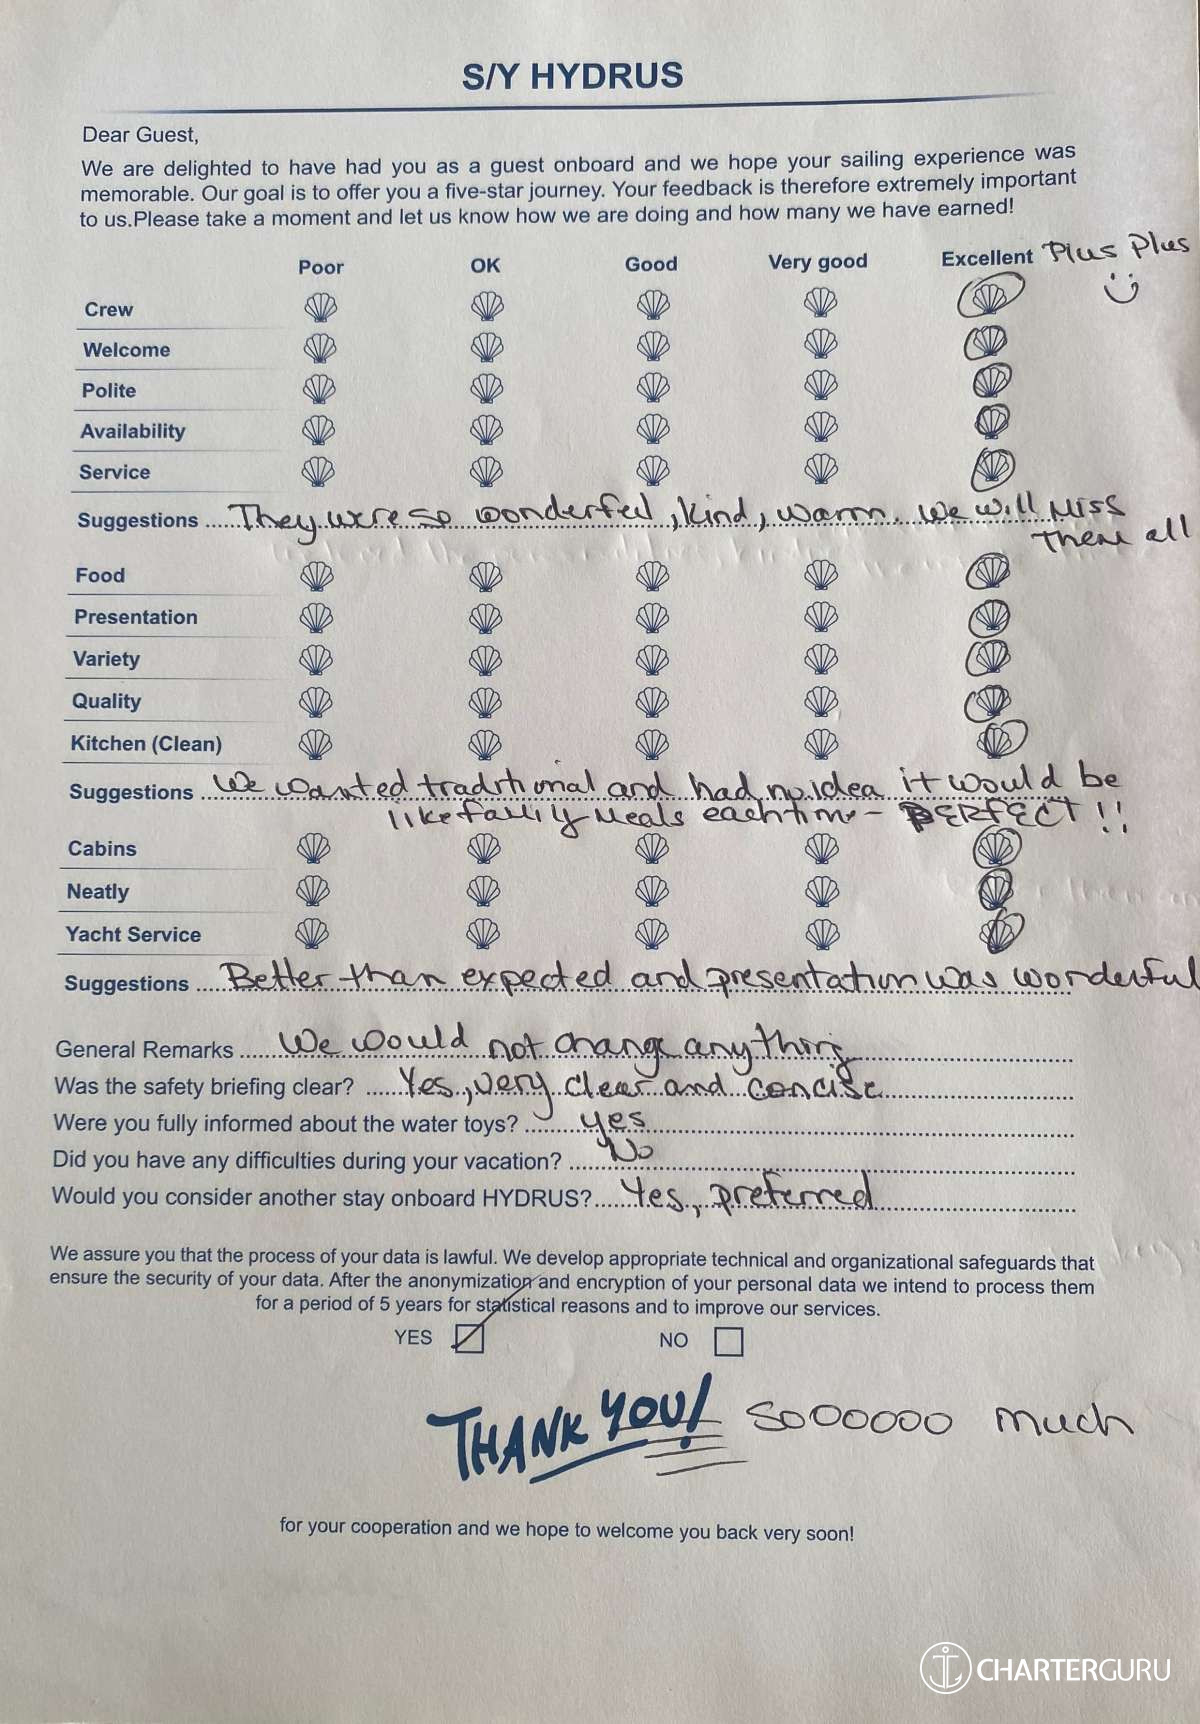 S/Y HYDRUS
Dear Guest,
We are delighted to have had you as a guest onboard and we hope your sailing experience was
memorable. Our goal is to offer you a five-star journey. Your feedback is therefore extremely important
to us.Please take a moment and let us know how we are doing and how many we have earned!
Poor OK Good Very good Excellent Plus Plus
Crew
Welcome
Polite
Availability
Service
Suggestions They were so wonderful, kind, warm. We will miss
them all
Food
Presentation
Variety
Quality
Kitchen (Clean)
Suggestions We wanted traditional and had no idea it would be
like family meals each time - PERFECT!!
Cabins
Neatly
Yacht Service
Suggestions Better than expected and presentation was wonderful
General Remarks We would not change anything
Was the safety briefing clear? Yes, very clear and concise
Were you fully informed about the water toys? yes
Did you have any difficulties during your vacation? No
Would you consider another stay onboard HYDRUS? Yes, preferred
We assure you that the process of your data is lawful. We develop appropriate technical and organizational safeguards that
ensure the security of your data. After the anonymization and encryption of your personal data we intend to process them
for a period of 5 years for statistical reasons and to improve our services.
YES NO
THANK YOU! soooooo much
for your cooperation and we hope to welcome you back very soon!
CHARTERGURU